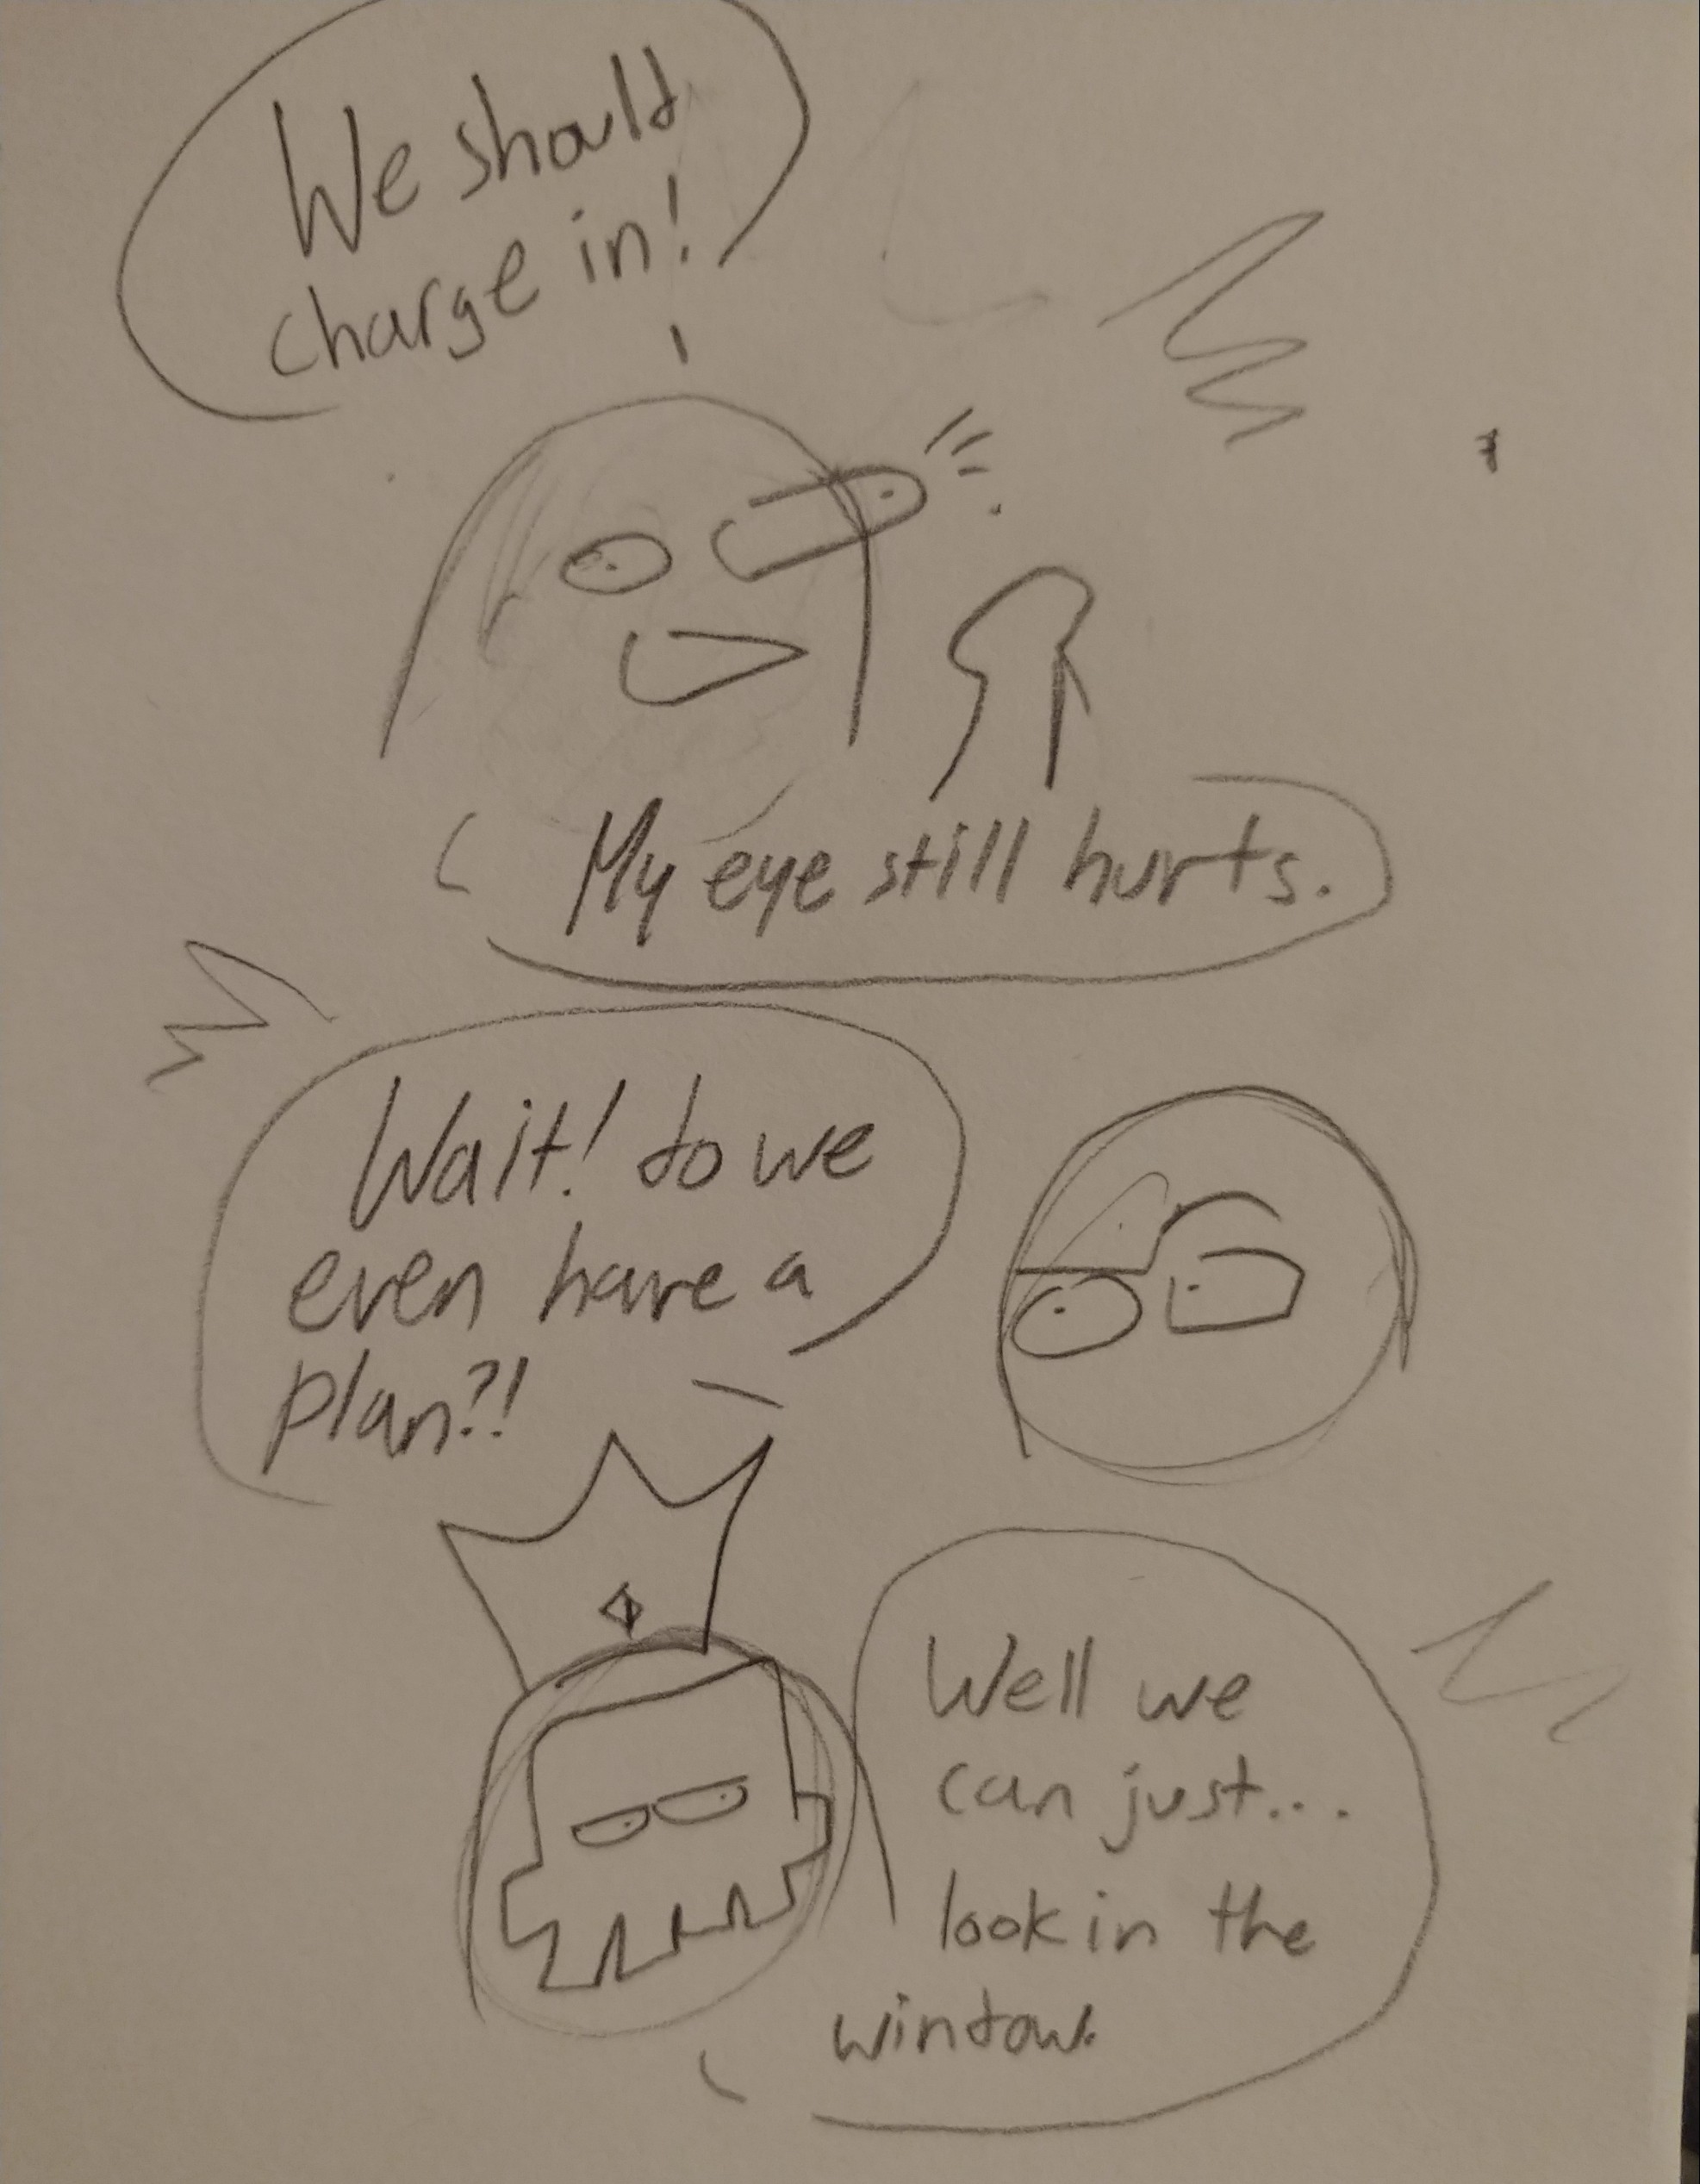 We should
charge in!
My eye still hurts.
Wait! do we
even have a
plan?!
Well we
can just...
look in the
window.